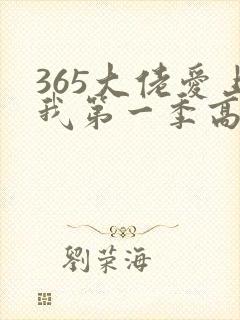 365大佬愛上
我第一季高
劉荣海